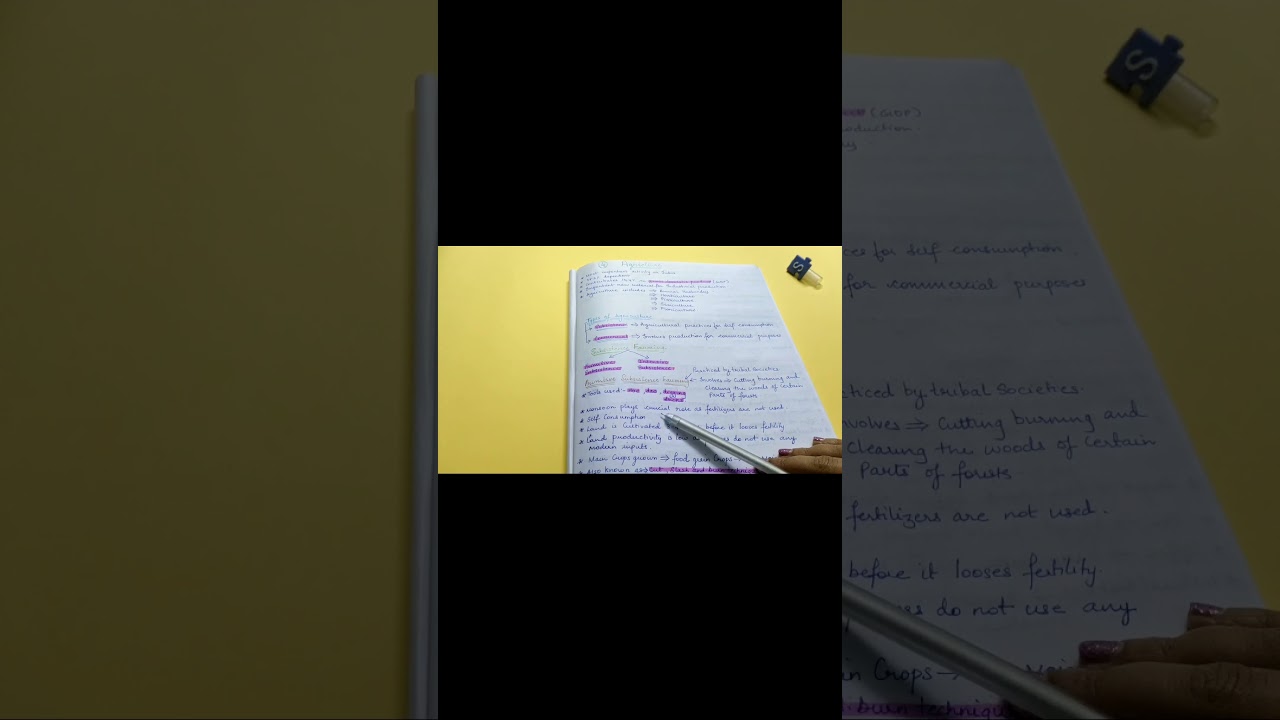 Agriculture
* Most important activity in India
(GDP)
* Important raw material for Industrial production
* Agriculture includes ⇒
Types of Agriculture
* Subsistence ⇒ Agricultural practices for self consumption
* Commercial ⇒ production for commercial purposes
Subsistence Farming
Primitive Subsistence Intensive Subsistence
Practiced by tribal Societies
Primitive Subsistence Farming
Involves ⇒ Cutting burning and
Clearing the woods of Certain
Parts of forests
* Tools used - Hoe, dao, digging
sticks
* Monsoon plays crucial role as fertilizers are not used.
* Self Consumption
* Land is Cultivated before it looses fertility.
* Land productivity is low do not use any
modern inputs.
* Main Crops grown ⇒ food grain Crops →
* Also known as ⇒ Slash and burn technique
S
(GDP)
oduction.
ces for self consumption
for commercial purposes
cticed by tribal Societies
nvolves ⇒ Cutting burning and
Clearing the woods of Certain
Parts of forests
fertilizers are not used.
before it looses fertility.
do not use any
in Crops →
burn technique
S